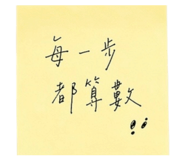 每一步
都算數
!!